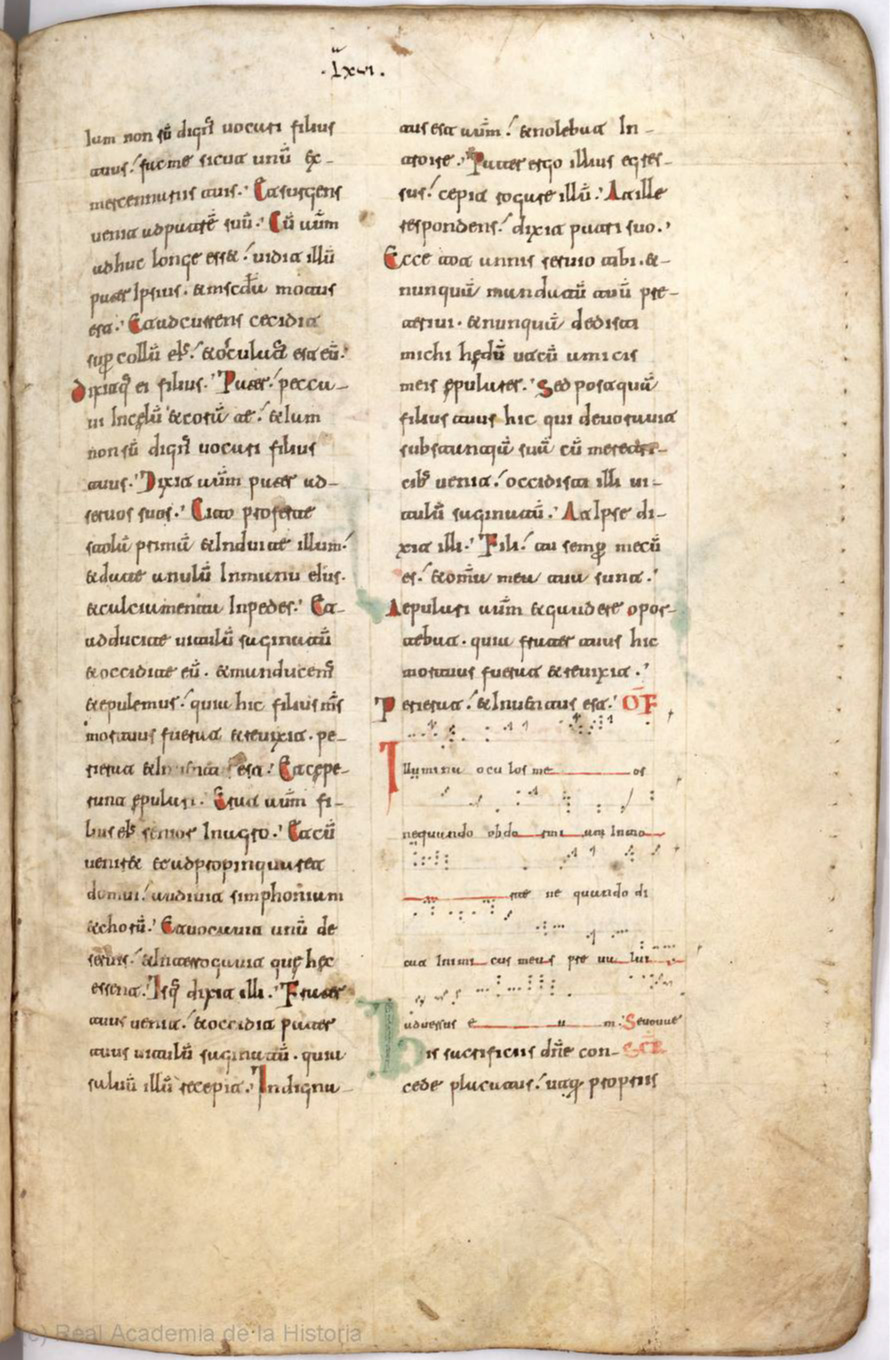 .Lxvi.
Iam non sū dignꝰ uocari filius
tuus. fac me sicut unū ex
mercennariis tuis. Et surgens
uenit ad patrē suū. Cū aūm
adhuc longe esset. uidit illū
pater ipsius. & mscdīa motus
est. Et adcurrens cecidit
suꝑ collū eiꝰ. & osculatꝰ est eū.
Dixitq; ei filius. Pater. pecca-
ui In cęlū & corā te. & Iam
non sū dignꝰ uocari filius
tuus. Dixit aūm pater ad-
seruos suos. Cito proferte
stolā primā & Induite illum.
& date anulū In manu eius.
& calciamenta In pedes. Et-
adducite uitulū saginatū
& occidite eū. & manducemꝰ
& epulemus. quia hic filius mS
mortuus fuerat & reuixit. pe-
rierat & est. Et cępe-
runt ępulari. Erat aūm fi-
lius eiꝰ senior In agro. Et cū
ueniret & adpropinquaret
domui. audiuit simphoniam
& chorū. Et uocauit unū de
seruis. & Interrogauit quę hęc
essent. Isq; dixit illi. Frater
tuus uenit. & occidit pater
tuus uitulū saginatū. quia
saluū illū recepit. Indigna-
tus est aūm. & nolebat In-
troire. Pater ergo illius egres-
sus. cepit rogare illū. At ille
respondens. dixit patri suo.
Ecce tot annis seruio tibi. &-
nunquā mandatū tuū pre-
teriui. & nunquā dedisti
michi hędū ut cū amicis
meis ępularer. Sed postquā
filius tuus hic qui deuorauit
substantiā suā cū meretri-
cibꝰ uenit. occidisti illi ui-
tulū saginatū. At Ipse di-
xit illi. Fili. tu semꝑ mecū
es. & omīa mea tua sunt.
Aepulari aūm & gaudere opor-
tebat. quia frater tuus hic
mortuus fuerat & reuixit.
Perierat. & Inuentus est. OF
Illumina oculos me os
nequando obdormi uat In mo
rte ne quando di
cat Inimi cus meus pre ua lui
aduersus e u m. Seuouae
his sacrificiis dn̄e con- SCR
cede placatus. ut q propriis
(c) Real Academia de la Historia